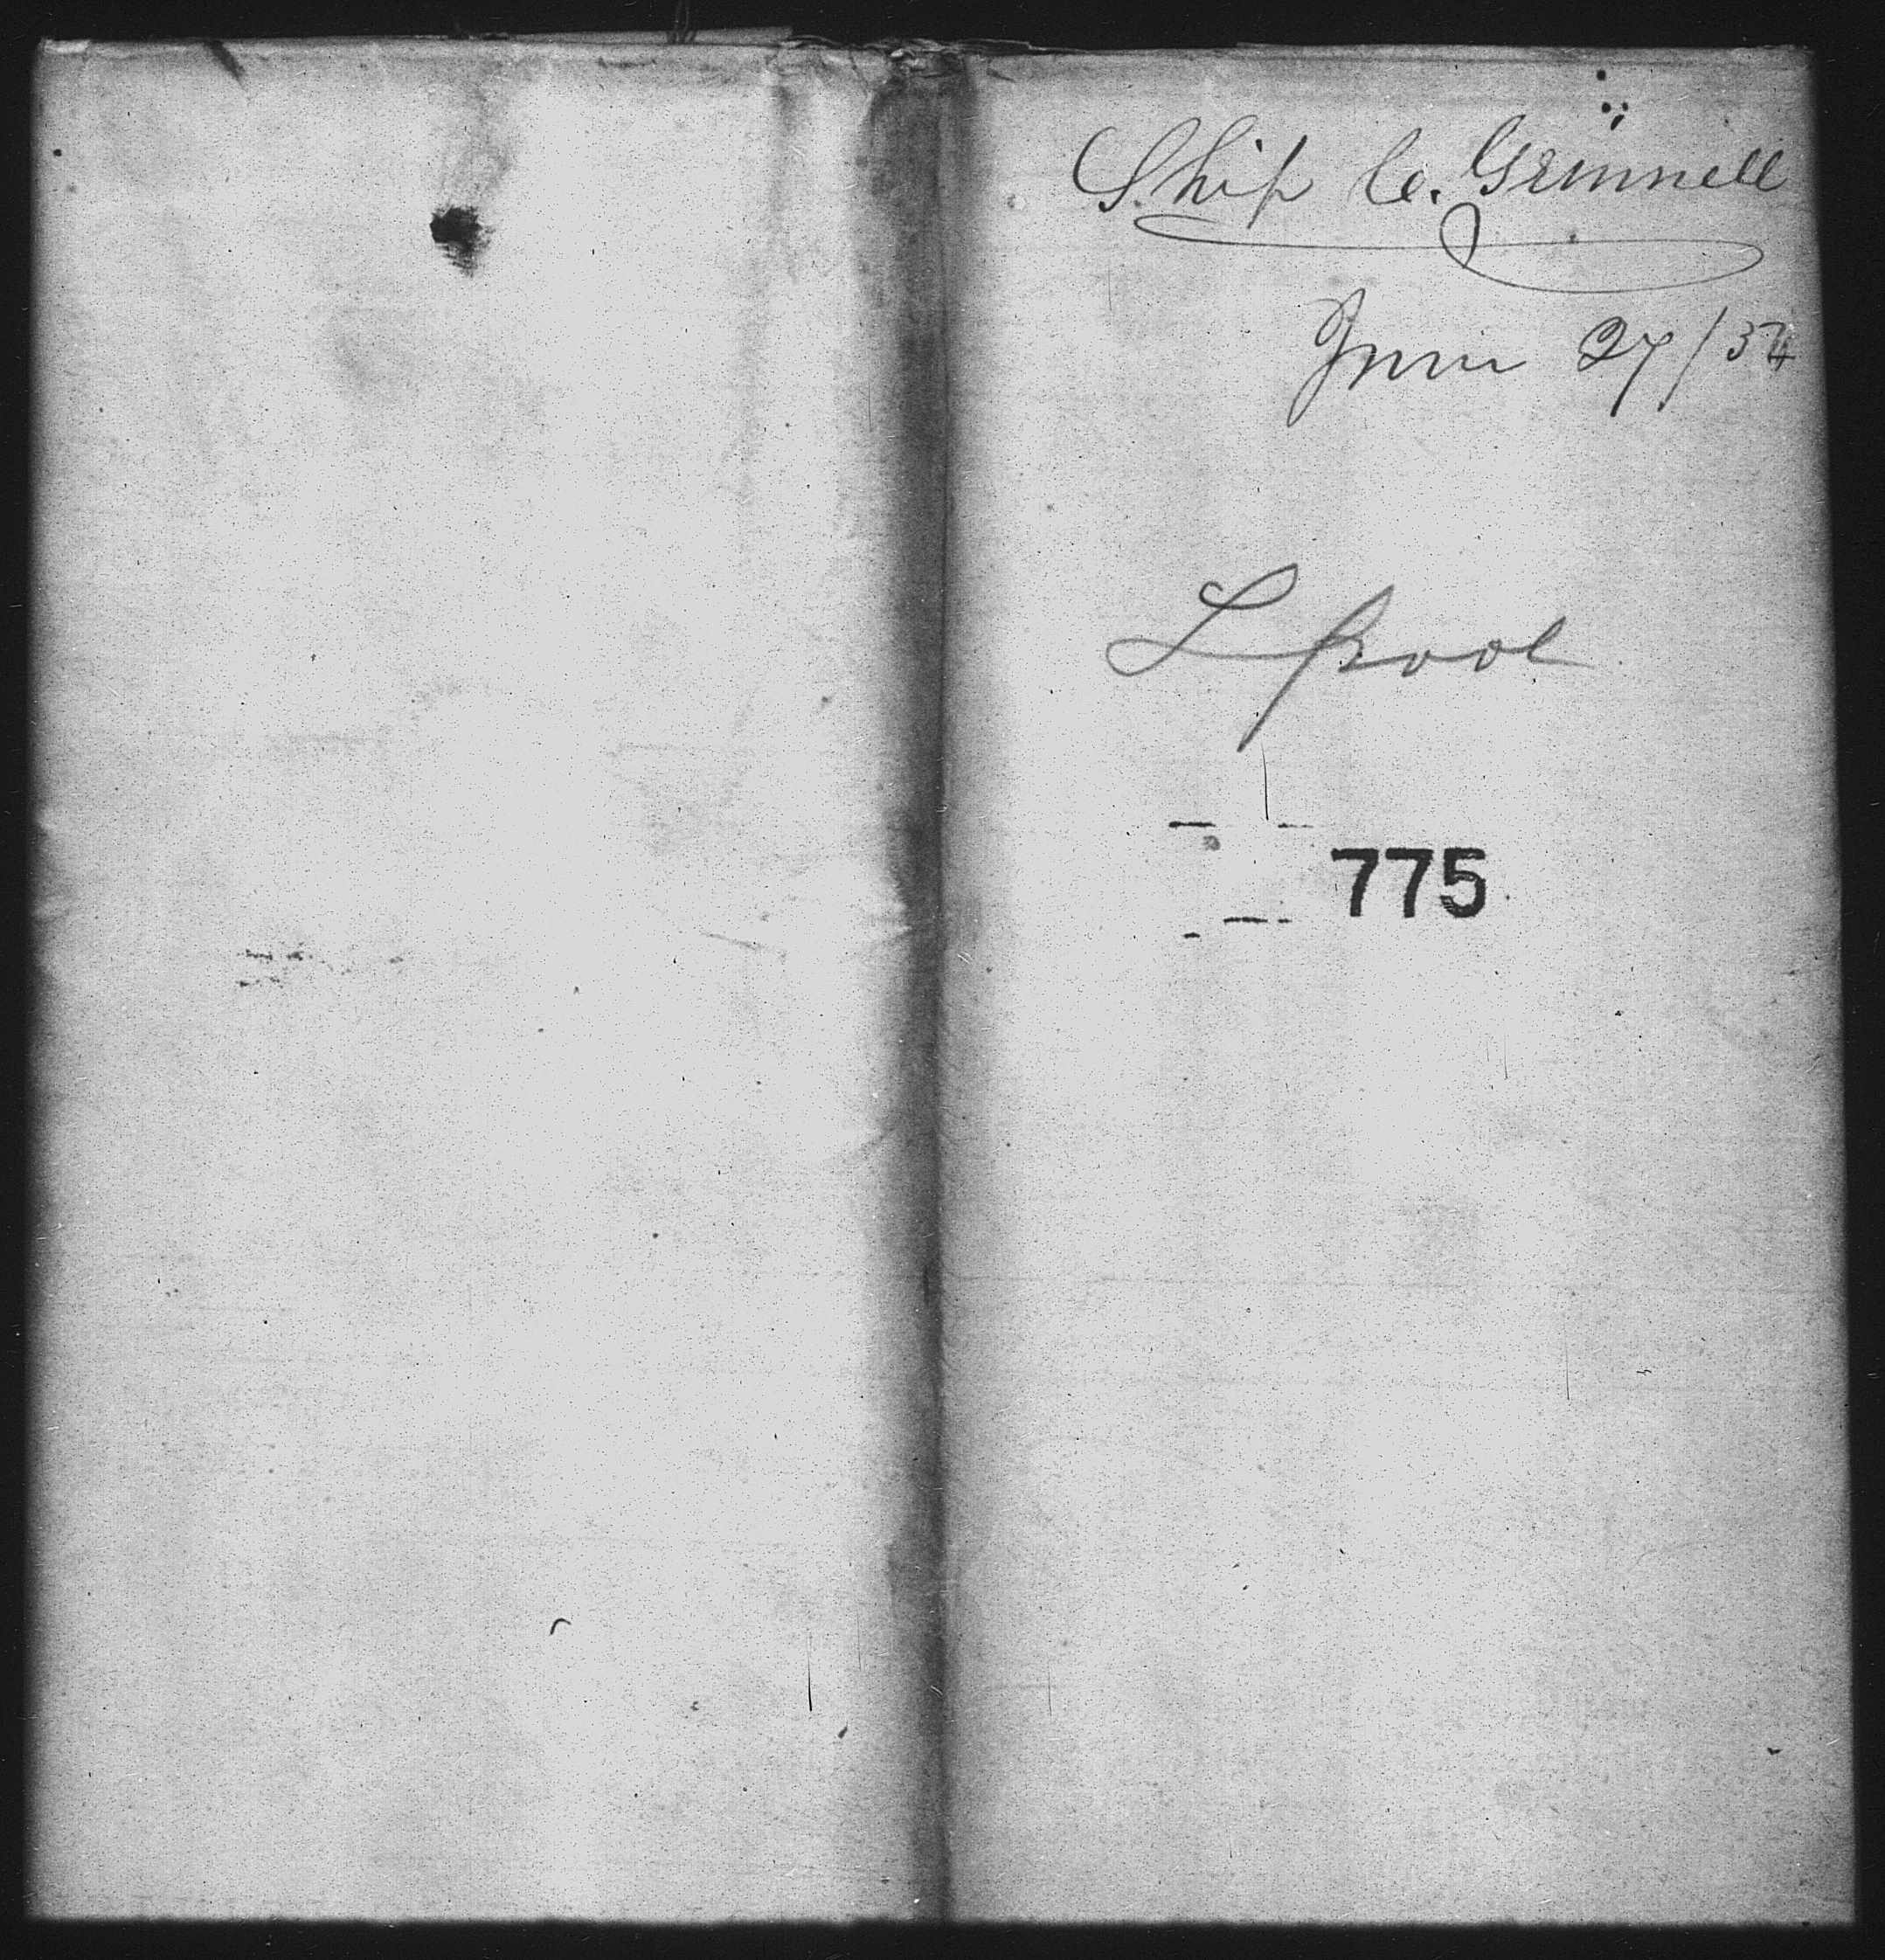 Ship C. Grinnell
June 27/54
Lpool
775